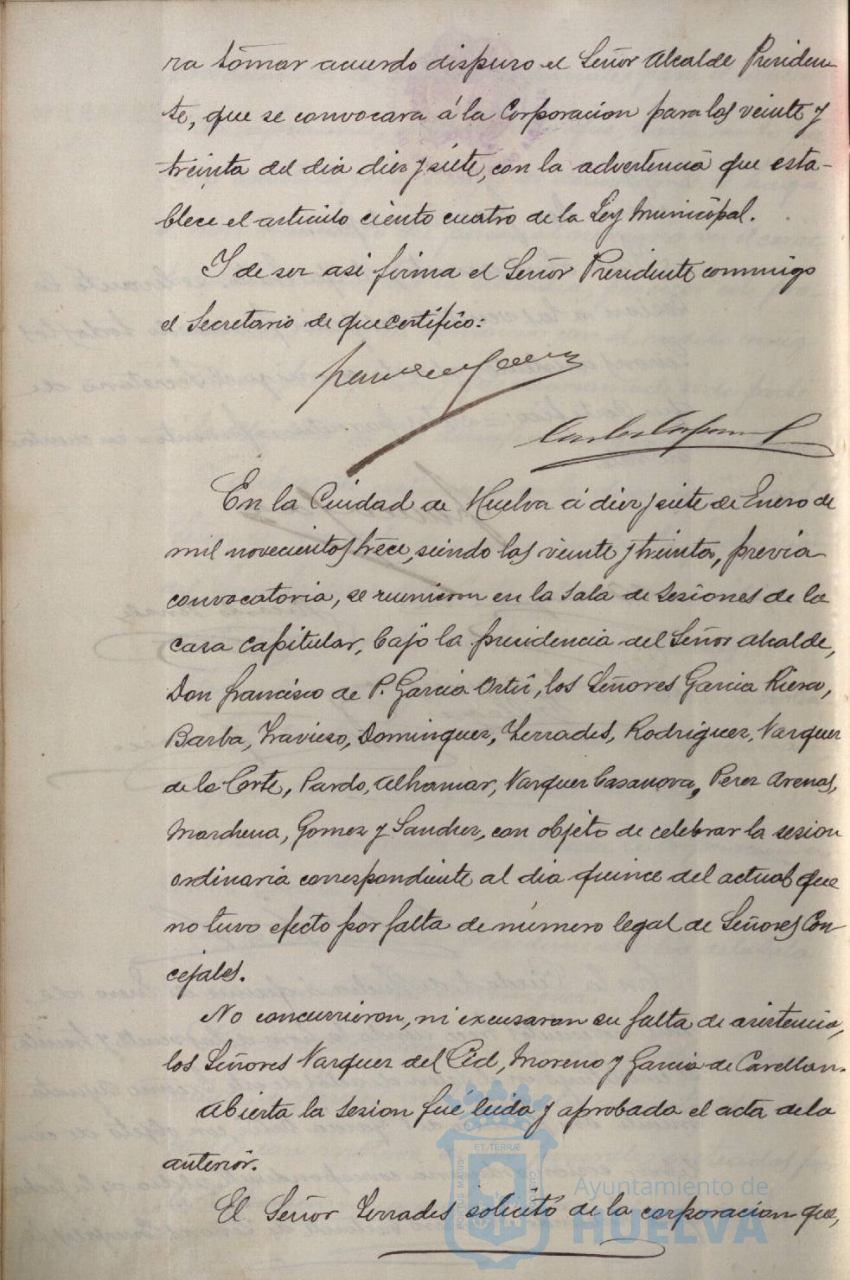 ra tomar acuerdo dispuso el Señor Alcalde Presiden
te, que se convocara á la Corporacion para las veinte y
treinta del dia diez y siete, con la advertencia que esta-
blece el articulo ciento cuatro de la Ley Municipal.
Y de ser asi firma el Señor Presidente conmigo
el Secretario de que certifico:
En la Ciudad de Huelva á diez y siete de Enero de
mil novecientos trece, siendo las veinte y treinta, previa
convocatoria, se reunieron en la Sala de Sesiones de la
casa Capitular, bajo la presidencia del Señor Alcalde,
Don Francisco de P. Garcia Ortiz, los Señores Garcia Riera,
Barba, Travieso, Dominguez, Terrades, Rodriguez, Vazquez
de la Corte, Pardo, Vazquez Casanova, Perez Arenas,
Marchena, Gomez y Sanchez, con objeto de celebrar la sesion
ordinaria correspondiente al dia quince del actual que
no tuvo efecto por falta de número legal de Señores Con-
cejales.
No concurrieron, ni excusaron su falta de asistencia,
los Señores Vazquez del Cid, Moreno y Garcia de
Abierta la sesion fué leida y aprobada el acta de la
anterior.
El Señor Terrades solicitó de la corporacion que,
Ayuntamiento de
HUELVA